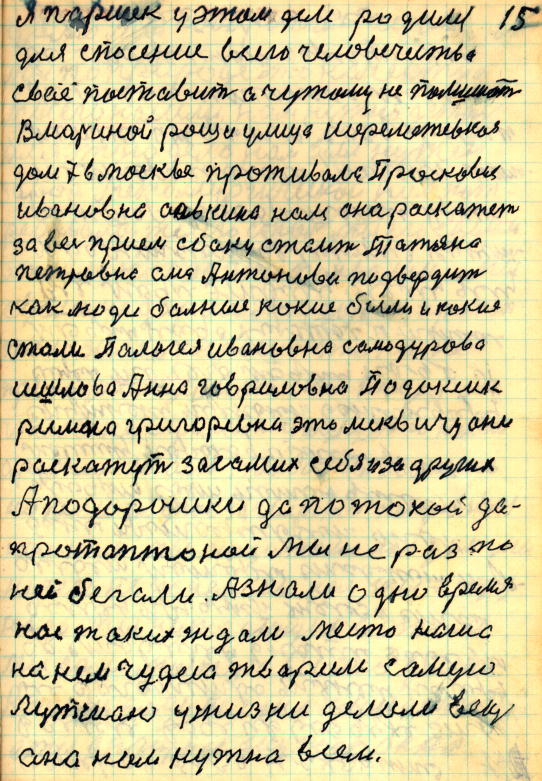 я паршек у этом деле родилу 15
для спосение всего человечества
своее поставит а чужому не помишает
В мариной рощи улица шереметевкоя
дом 7 в москве проживала Просковея
ивановна нам она раскажет
за вес прием с боку стаит Татяна
петровна она Антонова подвердит
как люди болние кокие были и какие
стали Палогея ивановна самодурова
шишлова Анна говриловна Подокшик
римма григоревна это москвичу они
раскажут за самих себя и за других
А подорошки да по токой да-
протоптоной мы не раз по
ней бегали. А знали одно время
нас таких ждали место наше
на нем чудеса тварили самую
лутшаю у жизни делали вещ
она нам нужна всем.